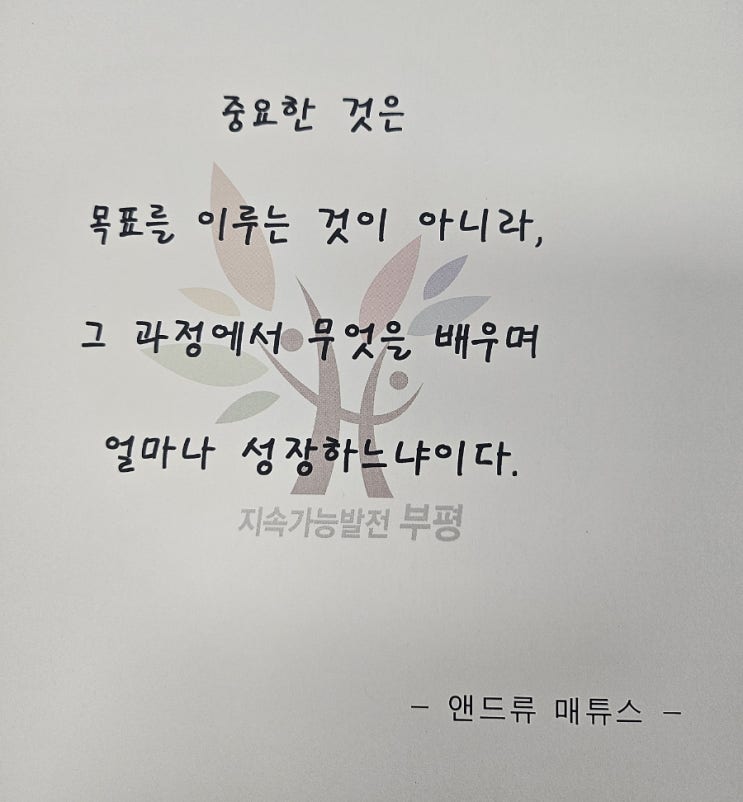 중요한 것은
목표를 이루는 것이 아니라,
그 과정에서 무엇을 배우며
얼마나 성장하느냐이다.
지속가능발전 부평
- 앤드류 매튜스 -